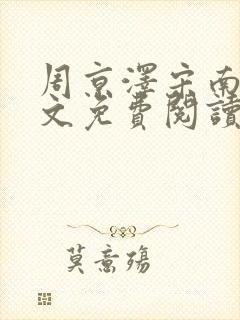 周京澤宋南
文免費閱讀
莫意殤